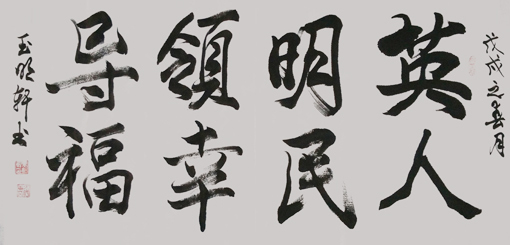 戊戌之春月
英明領导
人民幸福
玉明轩书